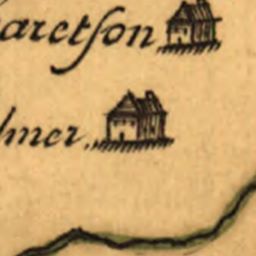 aretſon
lmer.